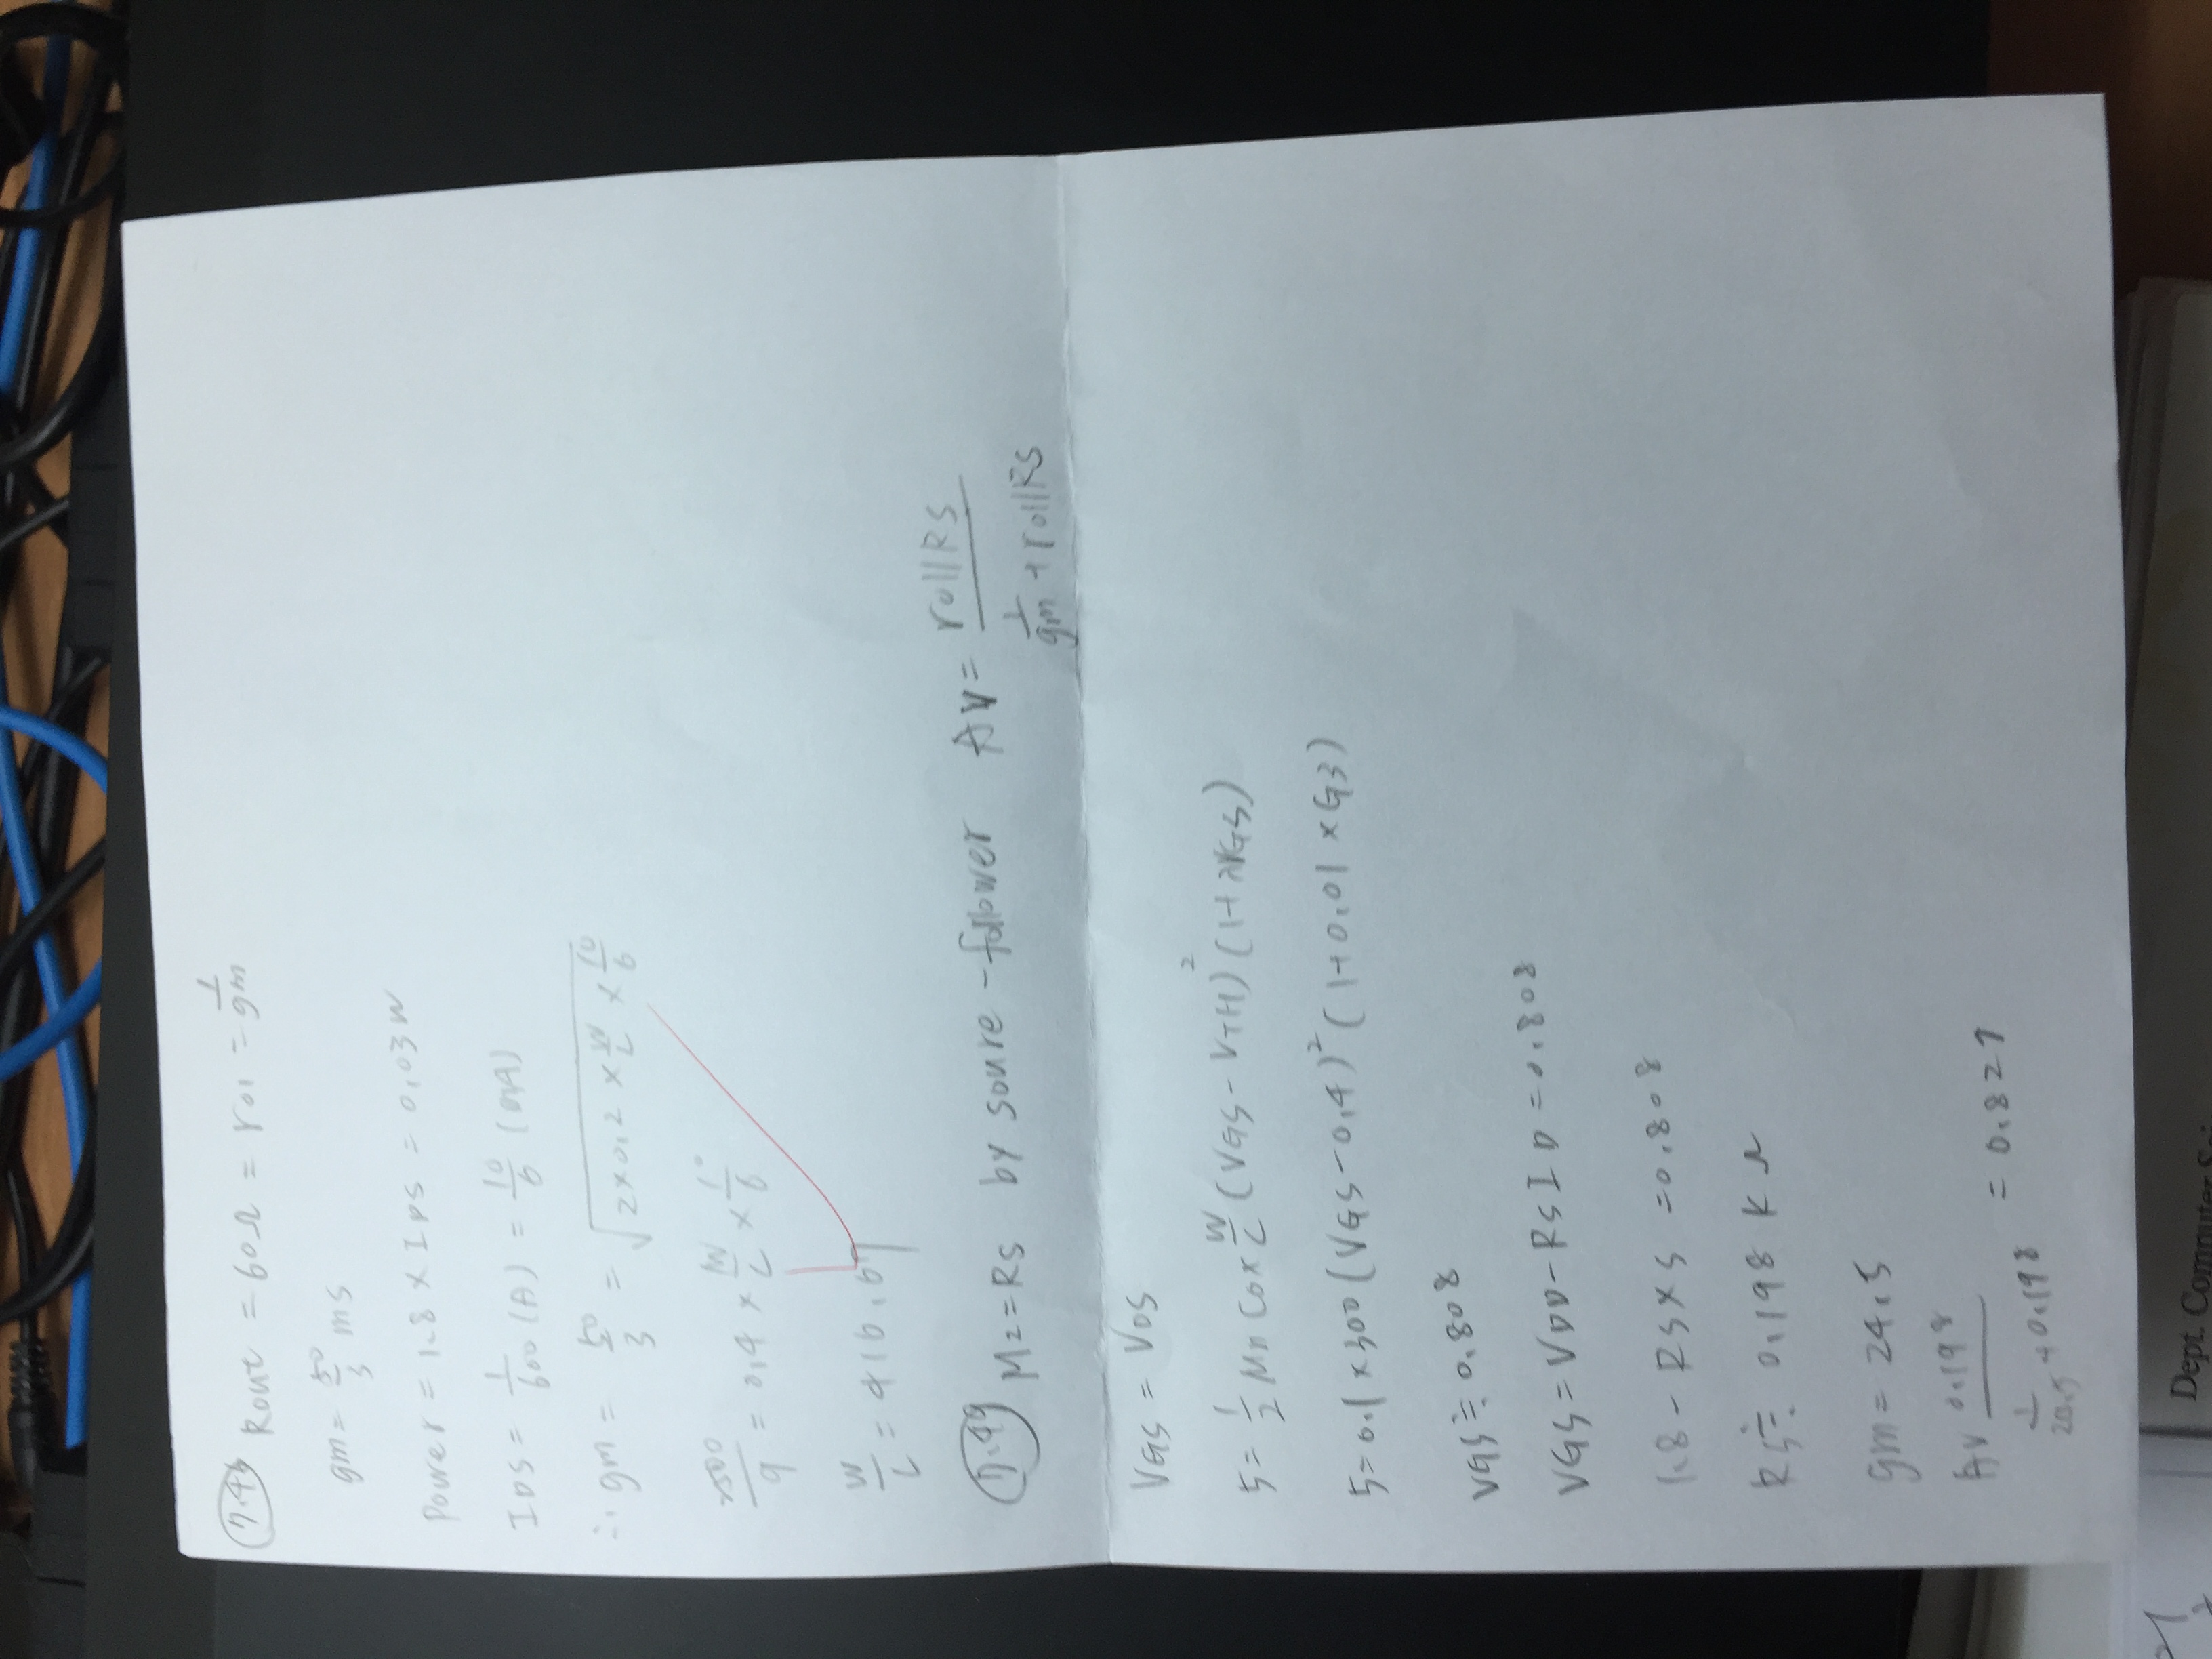 7.45 Rout = 60Ω = ro1 = 1/gm
gm = 50/3 ms
Power = 1.8 × IDS = 0.03W
IDS = 1/600 (A) = 10/6 (mA)
∴ gm = 50/3 = √(2×0.2 × W/L × 10/6)
2500/9 = 0.4 × W/L × 10/6
W/L = 416.67
7.49 M2 = RS by soure-follower AV = ro||RS / (1/gm + ro||RS)
VGS = VDS
5 = 1/2 Mn Cox W/L (VGS - VTH)² (1+λVGS)
5 = 0.1 × 300 (VGS - 0.4)² (1+0.01 × G3)
VGS ≒ 0.808
VGS = VDD - RS ID = 0.808
1.8 - RS × 5 = 0.808
RS ≒ 0.198 KΩ
gm = 24.5
AV 0.198 / (1/20.5 + 0.198) = 0.827
Dept. Computer